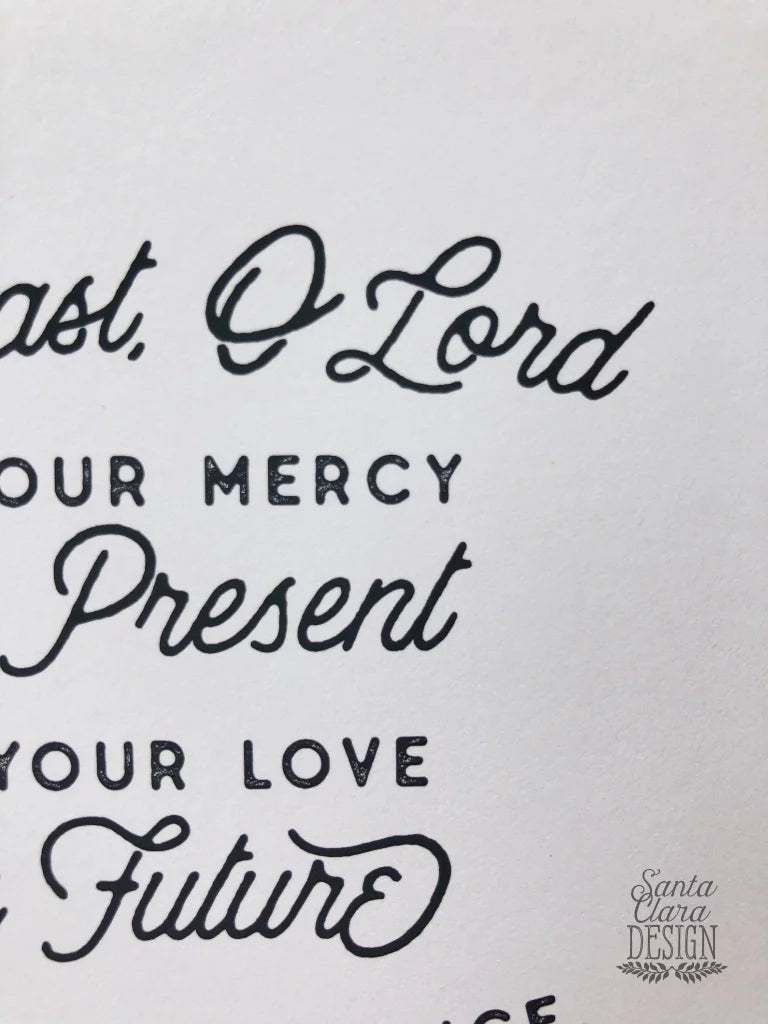 ast, O Lord
OUR MERCY
Present
YOUR LOVE
Future
Santa
Clara
DESIGN